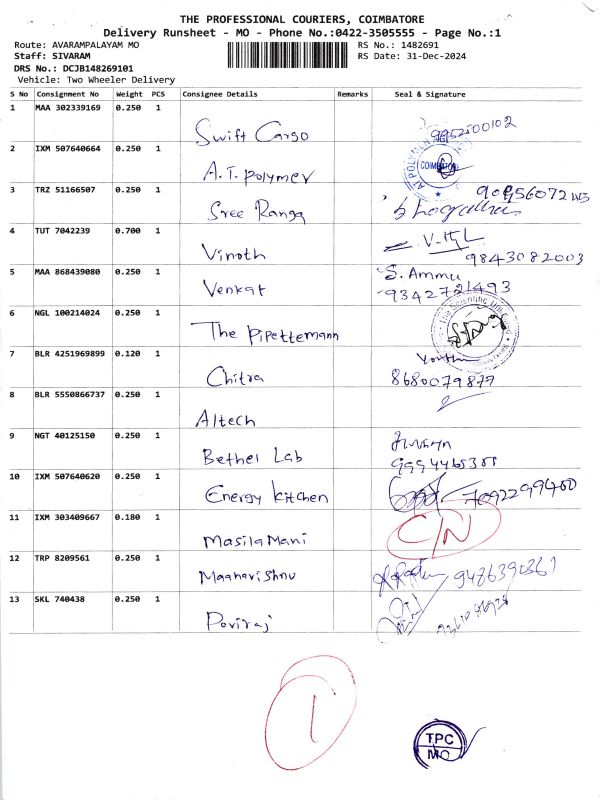 THE PROFESSIONAL COURIERS, COIMBATORE
Delivery Runsheet - MO - Phone No.:0422-3505555 - Page No.:1
Route: AVARAMPALAYAM MO
RS No.: 1482691
Staff: SIVARAM
RS Date: 31-Dec-2024
DRS No.: DCJB148269101
Vehicle: Two Wheeler Delivery
S No Consignment No Weight PCS Consignee Details Remarks Seal & Signature
1 MAA 302339169 0.250 1 Swift Cargo 9952500102
2 IXM 507640664 0.250 1 A.T. Polymer COIMBATORE
3 TRZ 51166507 0.250 1 Sree Ranga
4 TUT 7042239 0.700 1 Vinoth 9843082003
5 MAA 868439080 0.250 1 Venkat S. Ammu 9342721493
6 NGL 100214024 0.250 1 The Pipettemann
7 BLR 4251969899 0.120 1 Chitra 8680079877
8 BLR 5550866737 0.250 1 Altech
9 NGT 40125150 0.250 1 Bethel Lab
10 IXM 507640620 0.250 1 Energy Kitchen 7092299400
11 IXM 303409667 0.180 1 Masilamani C/N
12 TRP 8209561 0.250 1 Maahavishnu 9486390361
13 SKL 740438 0.250 1 Poviraj
1
TPC
MO